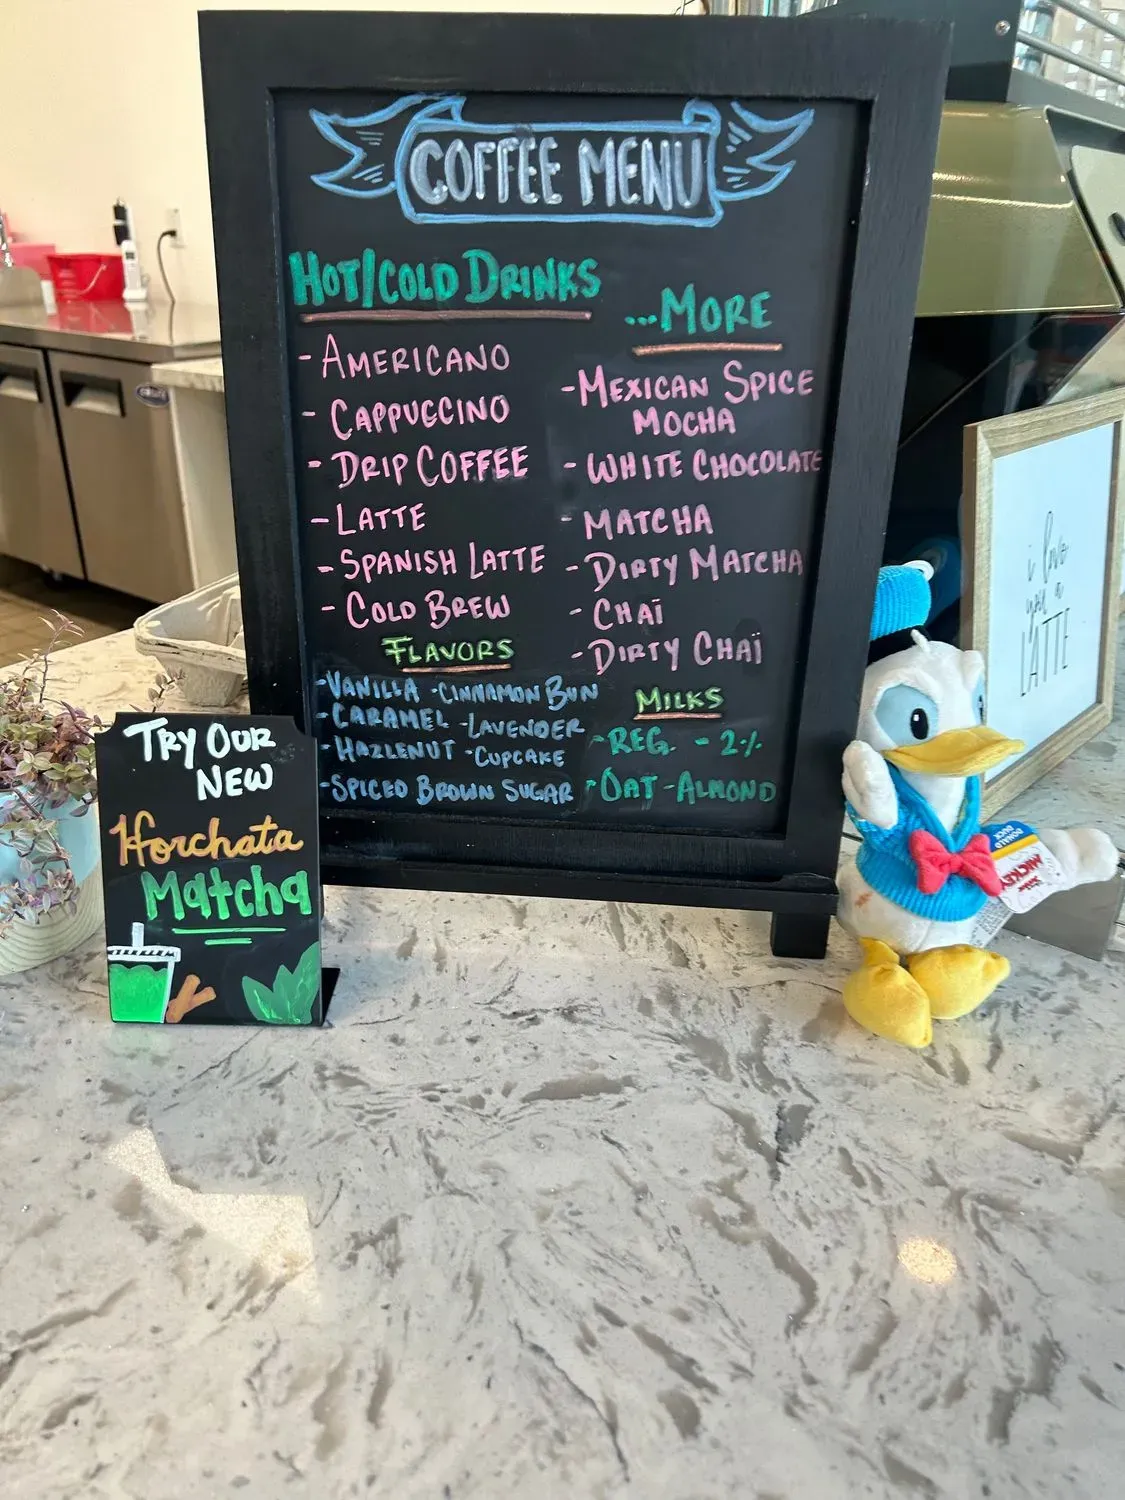 COFFEE MENU
HOT/COLD DRINKS
- AMERICANO
- CAPPUCCINO
- DRIP COFFEE
- LATTE
- SPANISH LATTE
- COLD BREW
...MORE
- MEXICAN SPICE
MOCHA
- WHITE CHOCOLATE
- MATCHA
- DIRTY MATCHA
- CHAÏ
- DIRTY CHAÏ
FLAVORS
- VANILLA - CINNAMON BUN
- CARAMEL - LAVENDER
- HAZLENUT - CUPCAKE
- SPICED BROWN SUGAR
MILKS
- REG. - 2%
- OAT - ALMOND
TRY OUR
NEW
Horchata
Matcha
i love
you a
LATTE
DONALD
DUCK
MICKEY